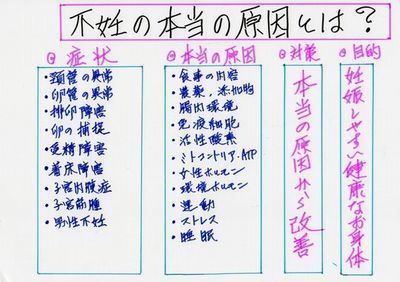 不妊の本当の原因とは?
症状
・頚管の異常
・卵管の異常
・排卵障害
・卵の捕捉
・受精障害
・着床障害
・子宮内膜症
・子宮筋腫
・男性不妊
本当の原因
・食事の内容
・農薬、添加物
・腸内環境
・免疫細胞
・活性酸素
・ミトコンドリア、ATP
・女性ホルモン
・環境ホルモン
・運動
・ストレス
・睡眠
対策
本当の原因から改善
目的
妊娠しやすい健康なお身体